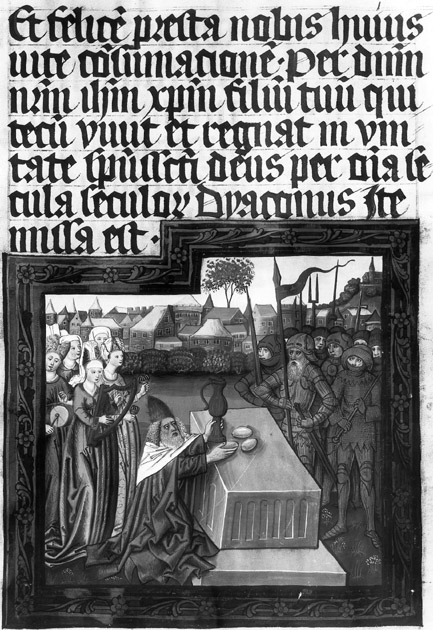 Et felicē presta nobis huius
uite cōsumacionē · Per dnm̄
nrm̄ ihm̄ xpm̄ filiū tuū qui
tecū viuit et regnat in vni
tate sp̄ussctī deus per oīa se
cula seculoꝝ Dyaconus Ite
missa est ·